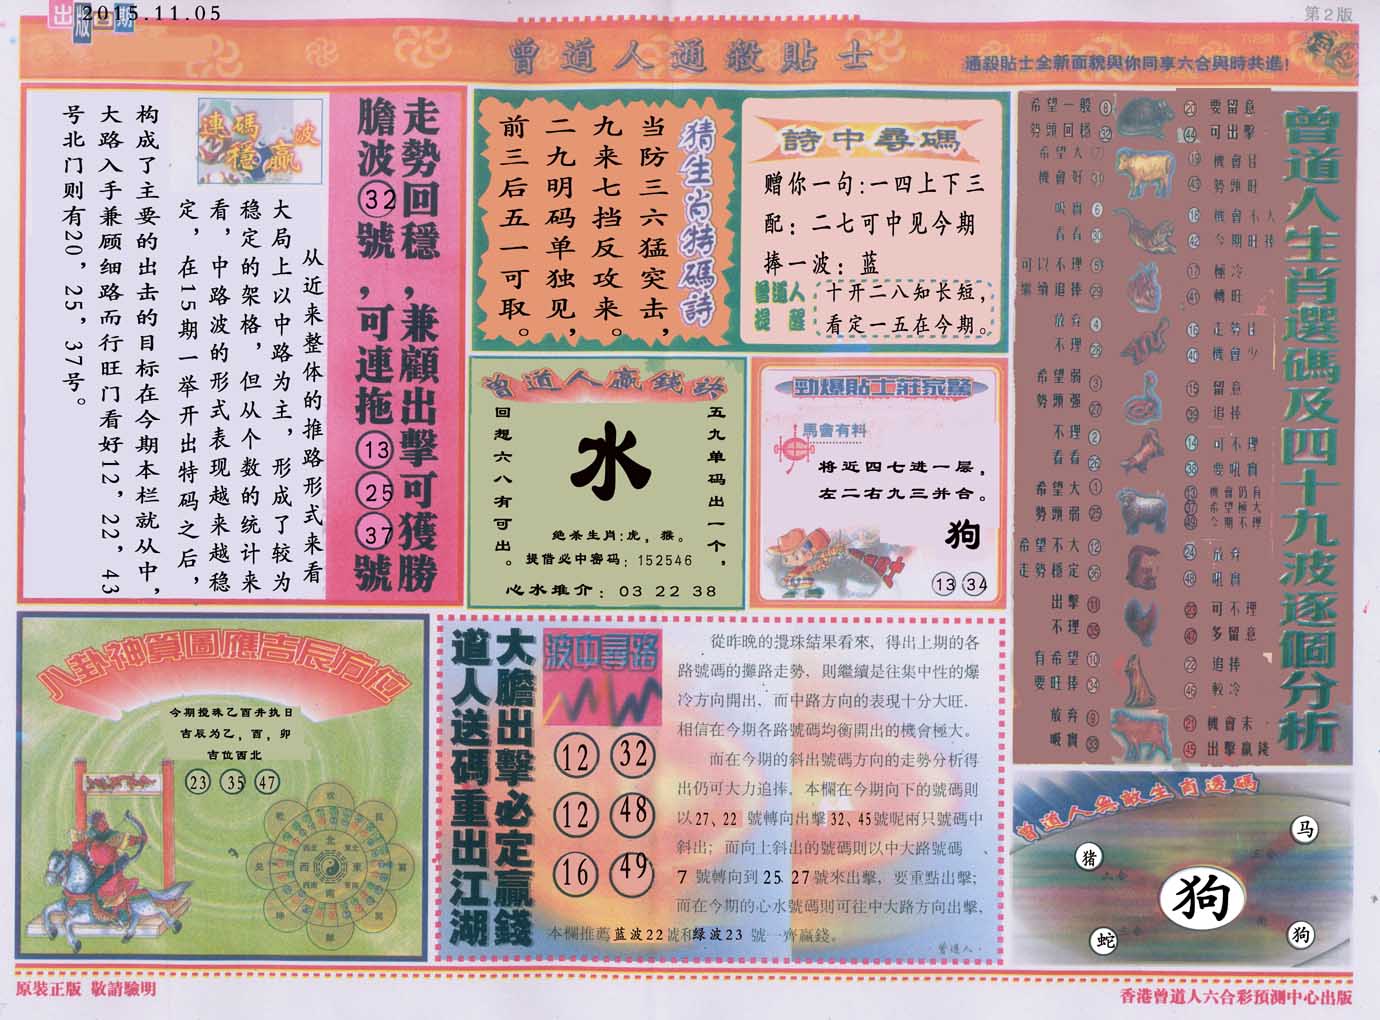 出版日期
2015.11.05
第2版
曾道人通殺貼士
通殺貼士全新面貌與你同享六合與時共進!
走勢回穩,兼顧出擊可獲勝
膽波32號,可連拖13 25 37號
連碼波
穩贏
从近来整体的推路形式来看
大局上以中路为主,形成了较为
稳定的架格,但从个数的统计来
看,中路波的形式表现越来越稳
定,在15期一举开出特码之后,
构成了主要的出击的目标在今期本栏就从中,
大路入手兼顾细路而行旺门看好12,22,43
号北门则有20,25,37号。
猜生肖特碼詩
当防三六猛突击,
九来七挡反攻来。
二九明码单独见,
前三后五一可取。
詩中尋碼
赠你一句:一四上下三
配:二七可中见今期
捧一波:蓝
曾道人
提醒
十开二八知长短,
看定一五在今期。
曾道人贏錢訣
五九单码出一个,
回想六八有可出。
水
绝杀生肖:虎,猴。
提借必中密码:152546
心水推介:03 22 38
勁爆貼士莊家驚
馬會有料
将近四七进一层,
左二右九三并合。
狗
13 34
曾道人生肖選碼及四十九波逐個分析
希望一般 8
勢頭回穩 32
20 要留意
44 可出擊
希望大 7
機會好 31
19 機會佳
43 勢頭旺
吸實 6
看看 30
18 機會不大
42 今期旺捧
可以不理 5
繼續追捧 29
17 極冷
41 轉旺
放弃 4
不理 28
16 走勢佳
40 機會少
希望弱 3
勢頭强 27
15 留意
39 追捧
不理 2
看看 26
14 可不理
38 要吼實
希望大 1
勢頭弱 25
13 機會仍有
37 希望極大
49 今期不理
希望不大 12
走勢穩定 36
24 放弃
48 吼實
出擊 11
不理 35
23 可不理
47 多留意
有希望 10
要旺捧 34
22 追捧
46 較冷
放弃 9
吸實 33
21 機會末
45 出擊贏錢
八卦神算圖應吉辰方位
今期搅珠乙酉井执日
吉辰为乙,酉,卯
吉位西北
23 35 47
北
西 東
南
大膽出擊必定贏錢
道人送碼重出江湖
波中尋路
12 32
12 48
16 49
從昨晚的攪珠結果看來,得出上期的各
路號碼的攤路走勢,則繼續是往集中性的爆
冷方向開出,而中路方向的表現十分大旺.
相信在今期各路號碼均衡開出的機會極大。
而在今期的斜出號碼方向的走勢分析得
出仍可大力追捧,本欄在今期向下的號碼則
以27、22 號轉向出擊32、45號呢兩只號碼中
斜出;而向上斜出的號碼則以中大路號碼、
7 號轉向到25 27號來出擊,要重點出擊;
而在今期的心水號碼則可往中大路方向出擊,
本欄推薦蓝波22號和绿波23 號一齊贏錢。
曾道人.
曾道人無敵生肖透碼
马
猪
狗
蛇
狗
原裝正版 敬請驗明
香港曾道人六合彩預測中心出版